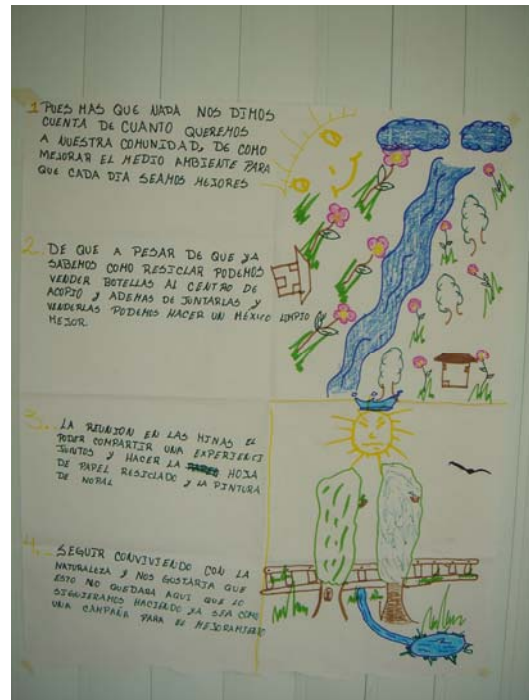 1 PUES MAS QUE NADA NOS DIMOS
CUENTA DE CUANTO QUEREMOS
A NUESTRA COMUNIDAD, DE COMO
MEJORAR EL MEDIO AMBIENTE PARA
QUE CADA DIA SEAMOS MEJORES
2.. DE QUE A PESAR DE QUE YA
SABEMOS COMO RESICLAR PODEMOS
VENDER BOTELLAS AL CENTRO DE
ACOPIO Y ADEMAS DE JUNTARLAS Y
VENDERLAS PODEMOS HACER UN MÉXICO LIMPIO
MEJOR.
3.. LA REUNION EN LAS MINAS EL
PODER COMPARTIR UNA EXPERIENCI
JUNTOS Y HACER LA HOJA
DE PAPEL RESICLADO Y LA PINTURA
DE NOPAL
4... SEGUIR CONVIVIENDO CON LA
NATURALEZA Y NOS GUSTARIA QUE
ESTO NO QUEDARA AQUI QUE LO
SIGUIERAMOS HACIENDO YA SEA COMO
UNA CAMPAÑA PARA EL MEJORAMIENTO